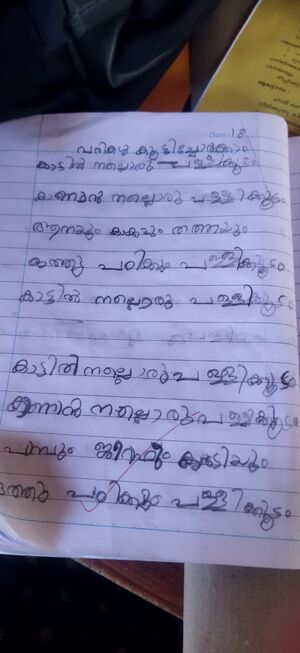 Date 1.8
വരികൾ കൂട്ടിച്ചേർക്കാം
കാട്ടിൽ നല്ലൊരു പള്ളിക്കൂടം
കാണാൻ നല്ലൊരു പള്ളിക്കൂടം
ആനയും കാകനും തത്തയും
ഒത്തു പഠിക്കും പള്ളിക്കൂടം
കാട്ടിൽ നല്ലൊരു പള്ളിക്കൂടം
കാട്ടിൽ നല്ലൊരു പള്ളിക്കൂടം
കാണാൻ നല്ലൊരു പള്ളിക്കൂടം
പാമ്പും ജിറാഫും കരടിയും
ഒത്തു പഠിക്കും പള്ളിക്കൂടം